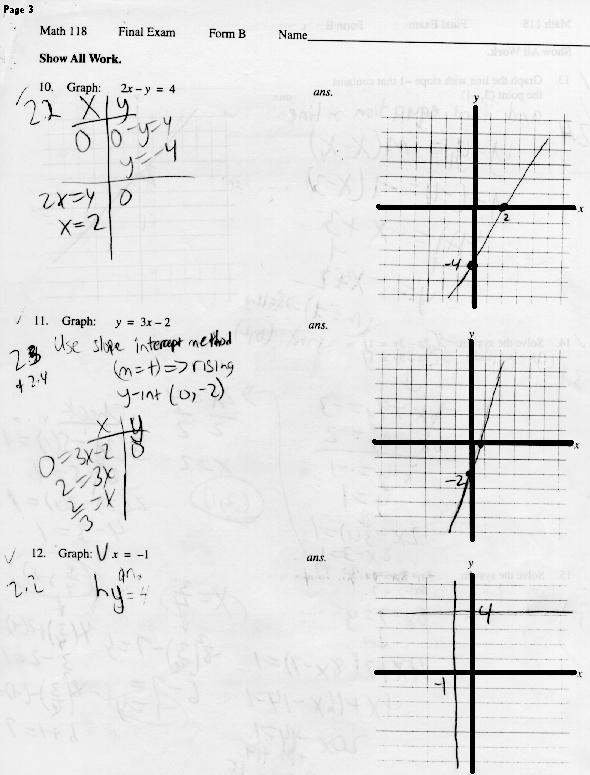 Page 3
Math 118 Final Exam Form B Name
Show All Work.
10. Graph: 2x – y = 4 ans.
2.2
x y
0 0 - y = 4
y = -4
2x = 4 0
x = 2
y
x
2
-4
11. Graph: y = 3x – 2 ans.
2.3
+ 2.4
Use slope intercept method
(m = +) => rising
y-int (0, -2)
x y
0 = 3x - 2 0
2 = 3x
2/3 = x
y
x
-2
12. Graph: V x = –1 ans.
2.2
an.
hy = 4
y
x
4
-1